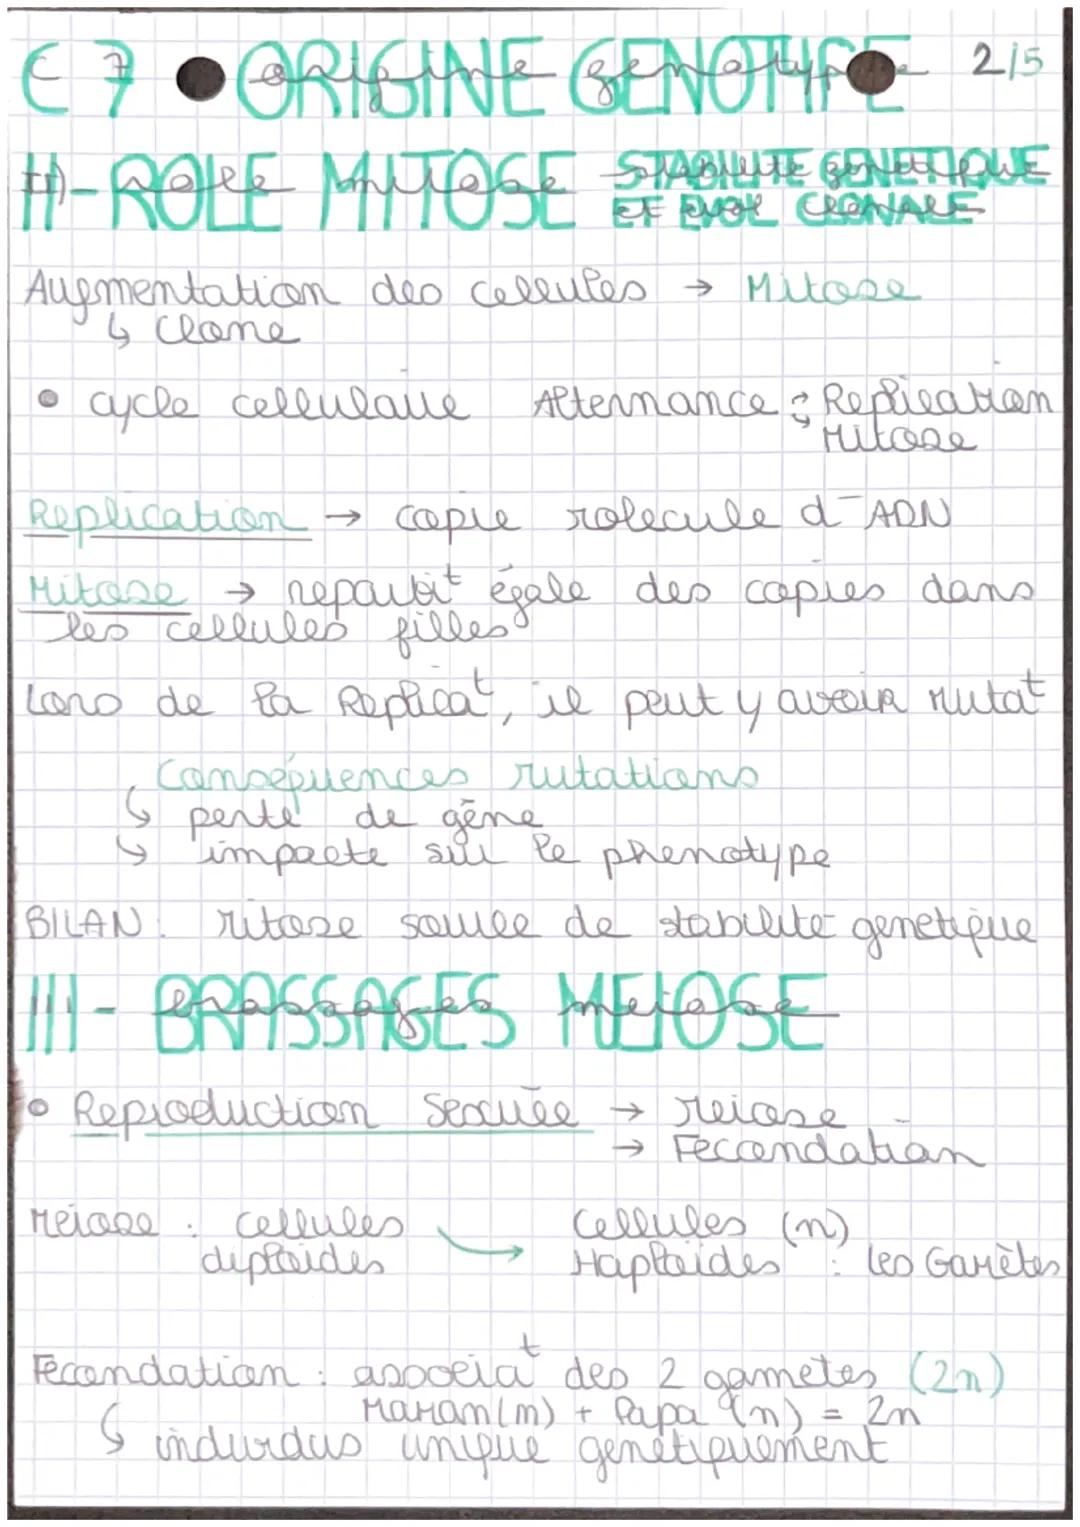 C 7 • ORIGINE GENOTYPE 2/5
II)- ROLE MITOSE STABILITE GENETIQUE
ET EVOL CLONALE
Augmentation des cellules → Mitose
↳ Clone
• cycle cellulaire Alternance : Replication
Mitose
Replication → copie molecule d'ADN
Mitose → repartit° égale des copies dans
les cellules filles
Lors de la Replicat°, il peut y avoir mutat°
Conséquences mutations
↳ perte de gène
↳ impacte sur le phenotype
BILAN : mitose source de stabilité genetique
III- BRASSAGES MEIOSE
• Reproduction Sexuée → Meiose
→ Fecondation
Meiose : cellules Cellules (n)
diploides → Haploides : les Gamètes
Fecondation : associat° des 2 gametes (2n)
Maman (n) + Papa (n) = 2n
↳ individus unique genetiquement